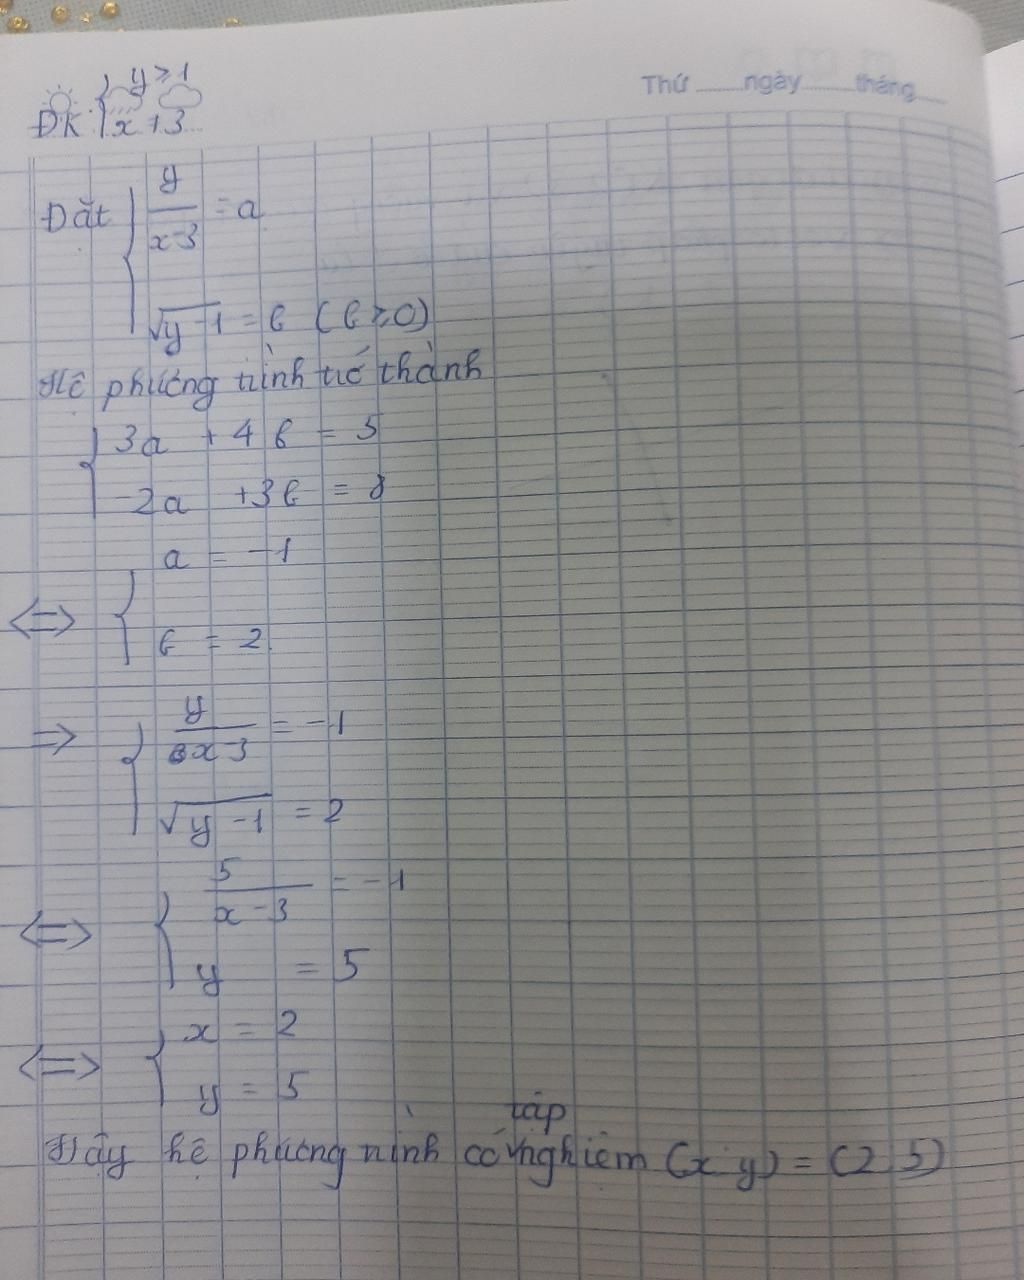 Thứ ......ngày ......tháng......
ĐK { y ≥ 1
x ≠ 3
Đặt { y/(x-3) = a
√(y-1) = b (b ≥ 0)
Hệ phương trình trở thành
{ 3a + 4b = 5
-2a + 3b = 8
<=> { a = -1
b = 2
=> { y/(x-3) = -1
√(y-1) = 2
<=> { 5/(x-3) = -1
y = 5
<=> { x = 2
y = 5
Vậy hệ phương trình có tập nghiệm (x y) = (2 5)